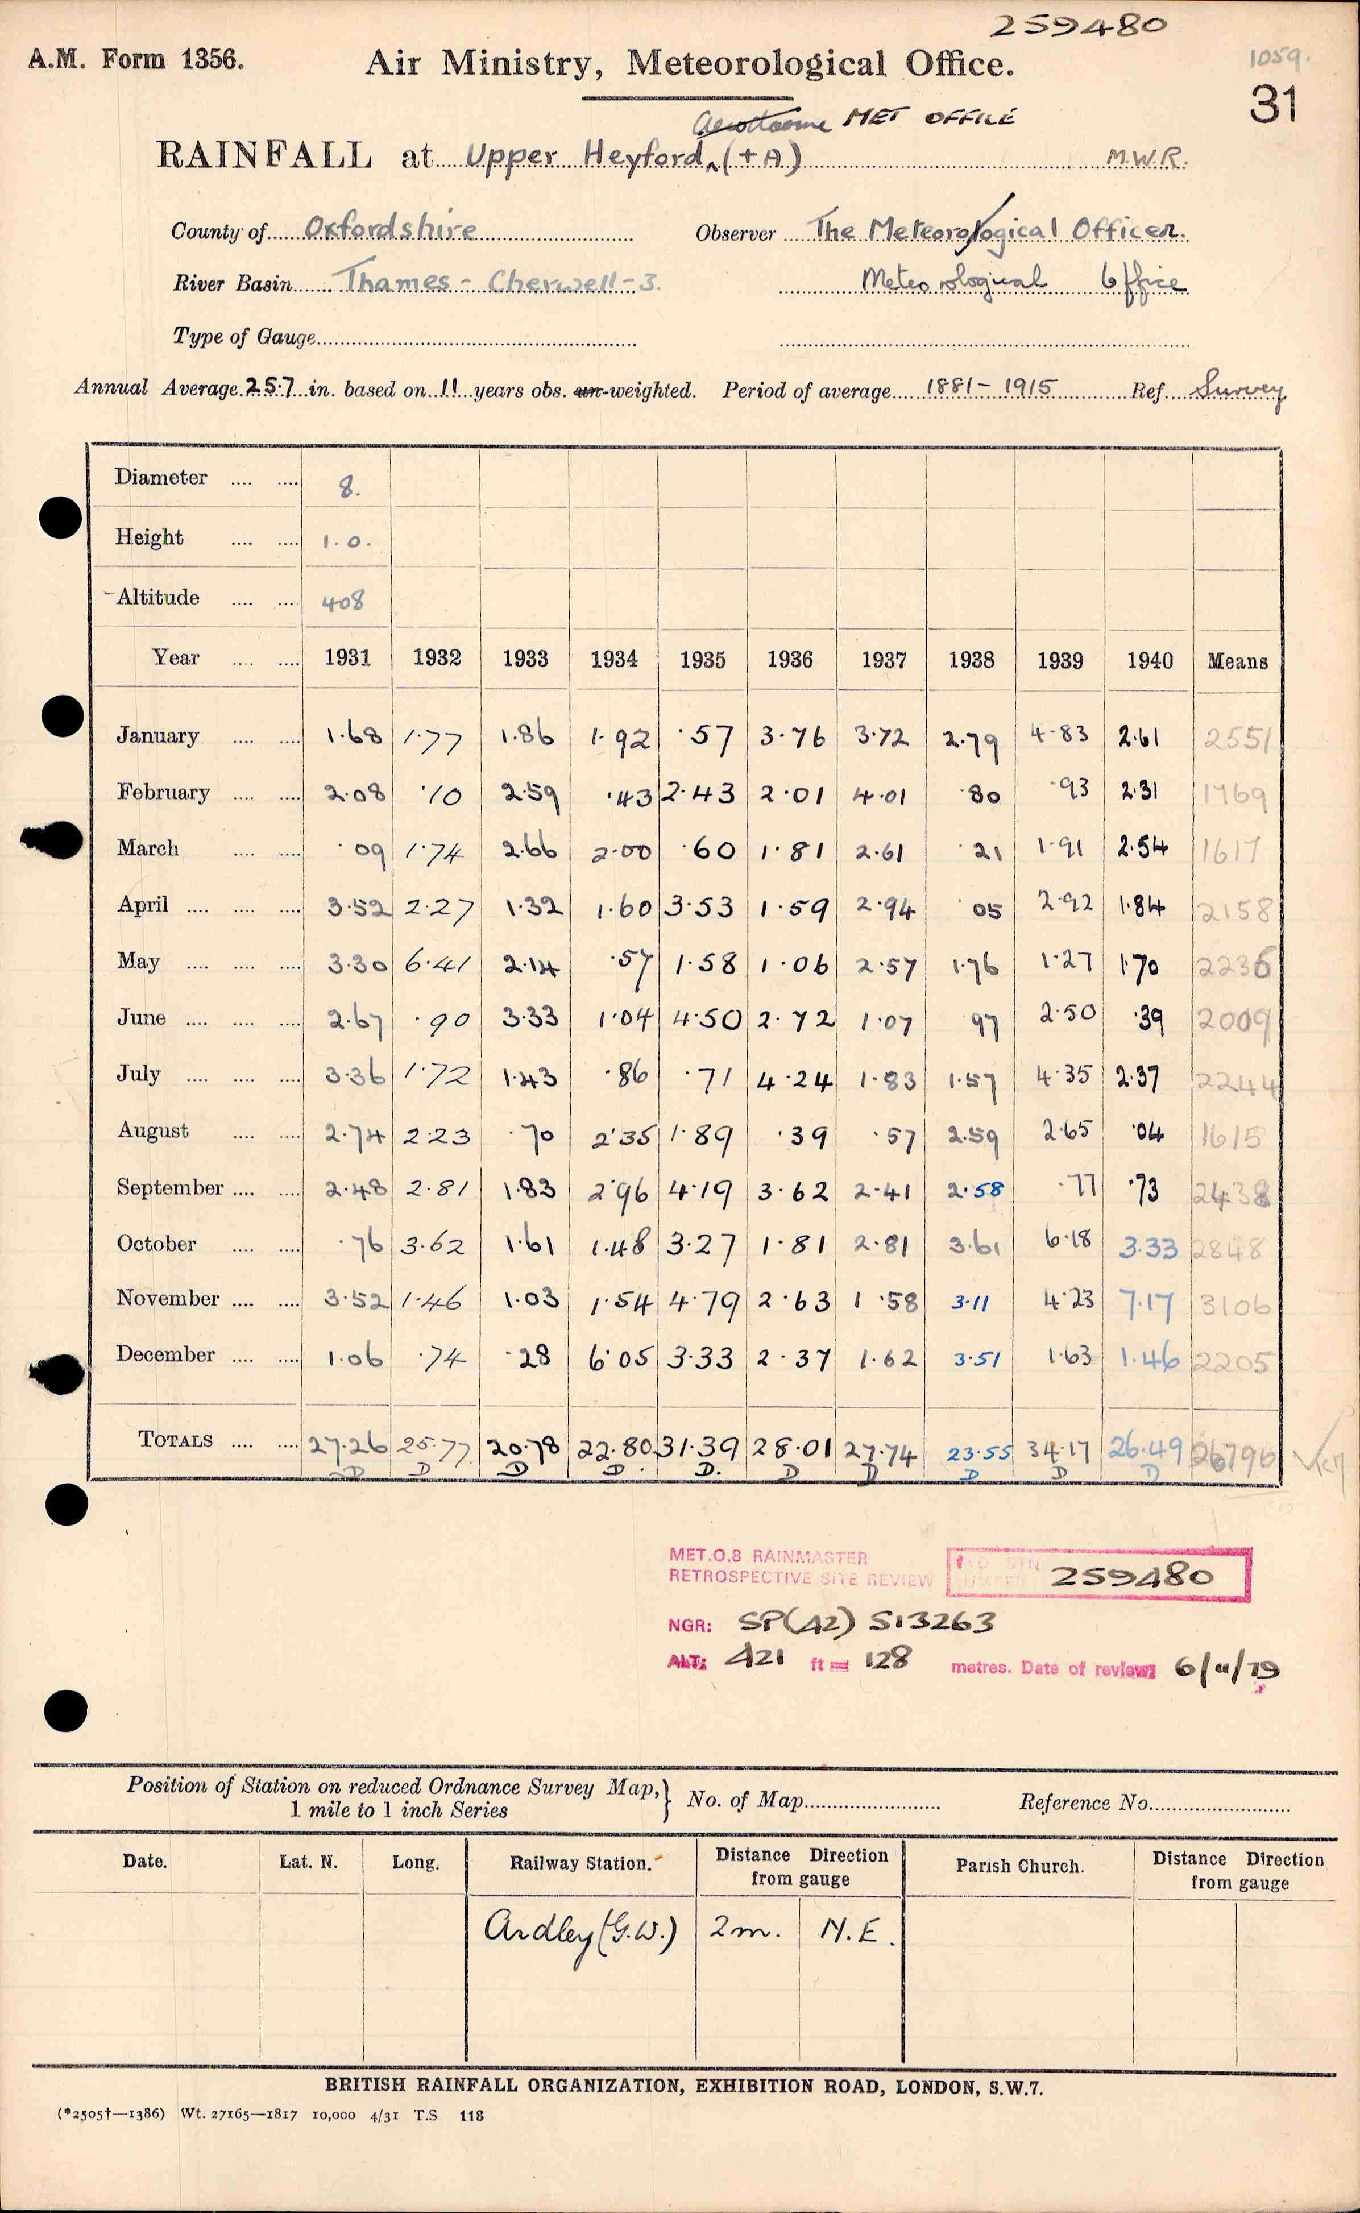 259480
A.M. Form 1356. Air Ministry, Meteorological Office. 1059.
31
Aerodrome MET OFFICE
RAINFALL at Upper Heyford (+A) M.W.R.
County of Oxfordshire Observer The Meteorological Officer.
River Basin Thames - Cherwell - 3. Meteorological Office
Type of Gauge
Annual Average 25.7 in. based on 11 years obs. un-weighted. Period of average 1881-1915 Ref. Survey
Diameter 8.
Height 1.0.
Altitude 408
Year 1931 1932 1933 1934 1935 1936 1937 1938 1939 1940 Means
January 1.68 1.77 1.86 1.92 .57 3.76 3.72 2.79 4.83 2.61 2551
February 2.08 .10 2.59 .43 2.43 2.01 4.01 .80 .93 2.31 1769
March .09 1.74 2.66 2.00 .60 1.81 2.61 .21 1.91 2.54 1617
April 3.52 2.27 1.32 1.60 3.53 1.59 2.94 .05 2.92 1.84 2158
May 3.30 6.41 2.14 .57 1.58 1.06 2.57 1.76 1.27 1.70 2236
June 2.67 .90 3.33 1.04 4.50 2.72 1.07 .97 2.50 .39 2009
July 3.36 1.72 1.43 .86 .71 4.24 1.83 1.57 4.35 2.37 2244
August 2.74 2.23 .70 2.35 1.89 .39 .57 2.59 2.65 .04 1615
September 2.48 2.81 1.83 2.96 4.19 3.62 2.41 2.58 .77 .73 2438
October .76 3.62 1.61 1.48 3.27 1.81 2.81 3.61 6.18 3.33 2848
November 3.52 1.46 1.03 1.54 4.79 2.63 1.58 3.11 4.23 7.17 3106
December 1.06 .74 .28 6.05 3.33 2.37 1.62 3.51 1.63 1.46 2205
TOTALS 27.26 25.77 20.78 22.80 31.39 28.01 27.74 23.55 34.17 26.49 26796
D D D D D. D D D D D
MET.O.8 RAINMASTER
RETROSPECTIVE SITE REVIEW 259480
NGR: SP(42) 513263
ALT: 421 ft = 128 metres. Date of review: 6/11/79
Position of Station on reduced Ordnance Survey Map,
1 mile to 1 inch Series } No. of Map Reference No.
Date. Lat. N. Long. Railway Station. Distance Direction from gauge Parish Church. Distance Direction from gauge
Ardley (G.W.) 2m. N.E.
BRITISH RAINFALL ORGANIZATION, EXHIBITION ROAD, LONDON, S.W.7.
(*2505†—1386) Wt. 27165—1817 10,000 4/31 T.S 118